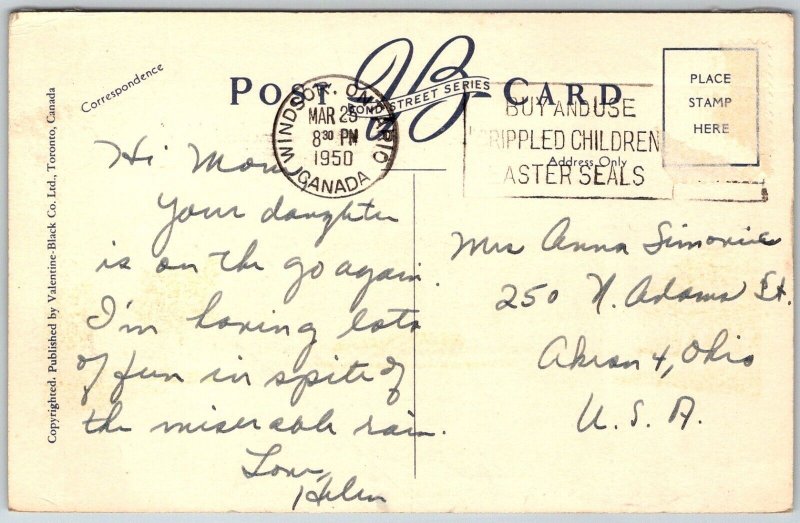 Correspondence
POST CARD
JB
BOND STREET SERIES
PLACE
STAMP
HERE
Address Only
WINDSOR, ONTARIO
MAR 25
8 30 PM
1950
CANADA
BUY AND USE
CRIPPLED CHILDREN
EASTER SEALS
Hi Mom
Your daughter
is on the go again.
I'm having lots
of fun in spite of
the miserable rain.
Love,
Helen
Mrs Anna
250 N. Adams St.
Akron 4, Ohio
U. S. A.
Copyrighted. Published by Valentine-Black Co. Ltd., Toronto, Canada